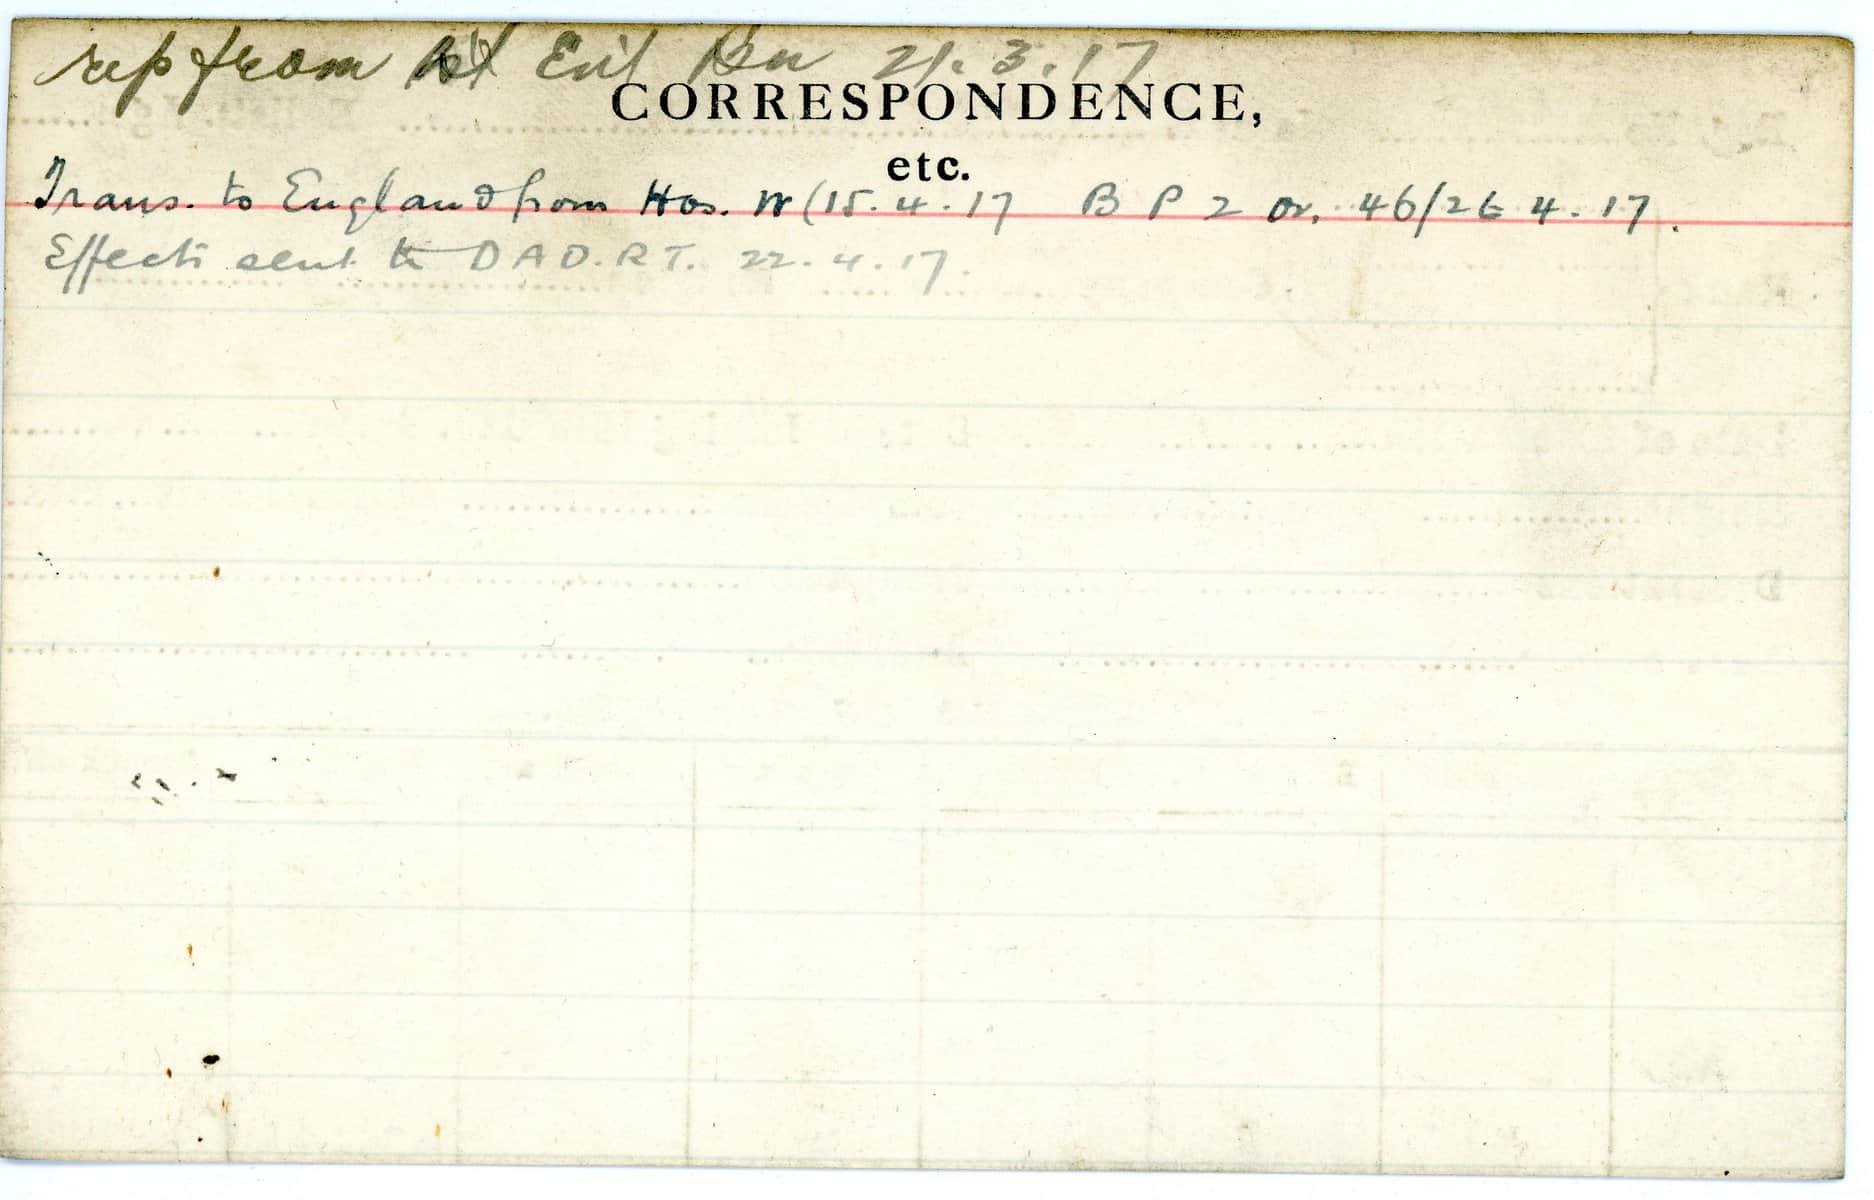 rep from Ent Bn 21.3.17
CORRESPONDENCE,
etc.
Trans. to England from Hos. W (15.4.17 B P 2 or. 46/26 4.17.
Effects sent to D A D. R T. 22.4.17.